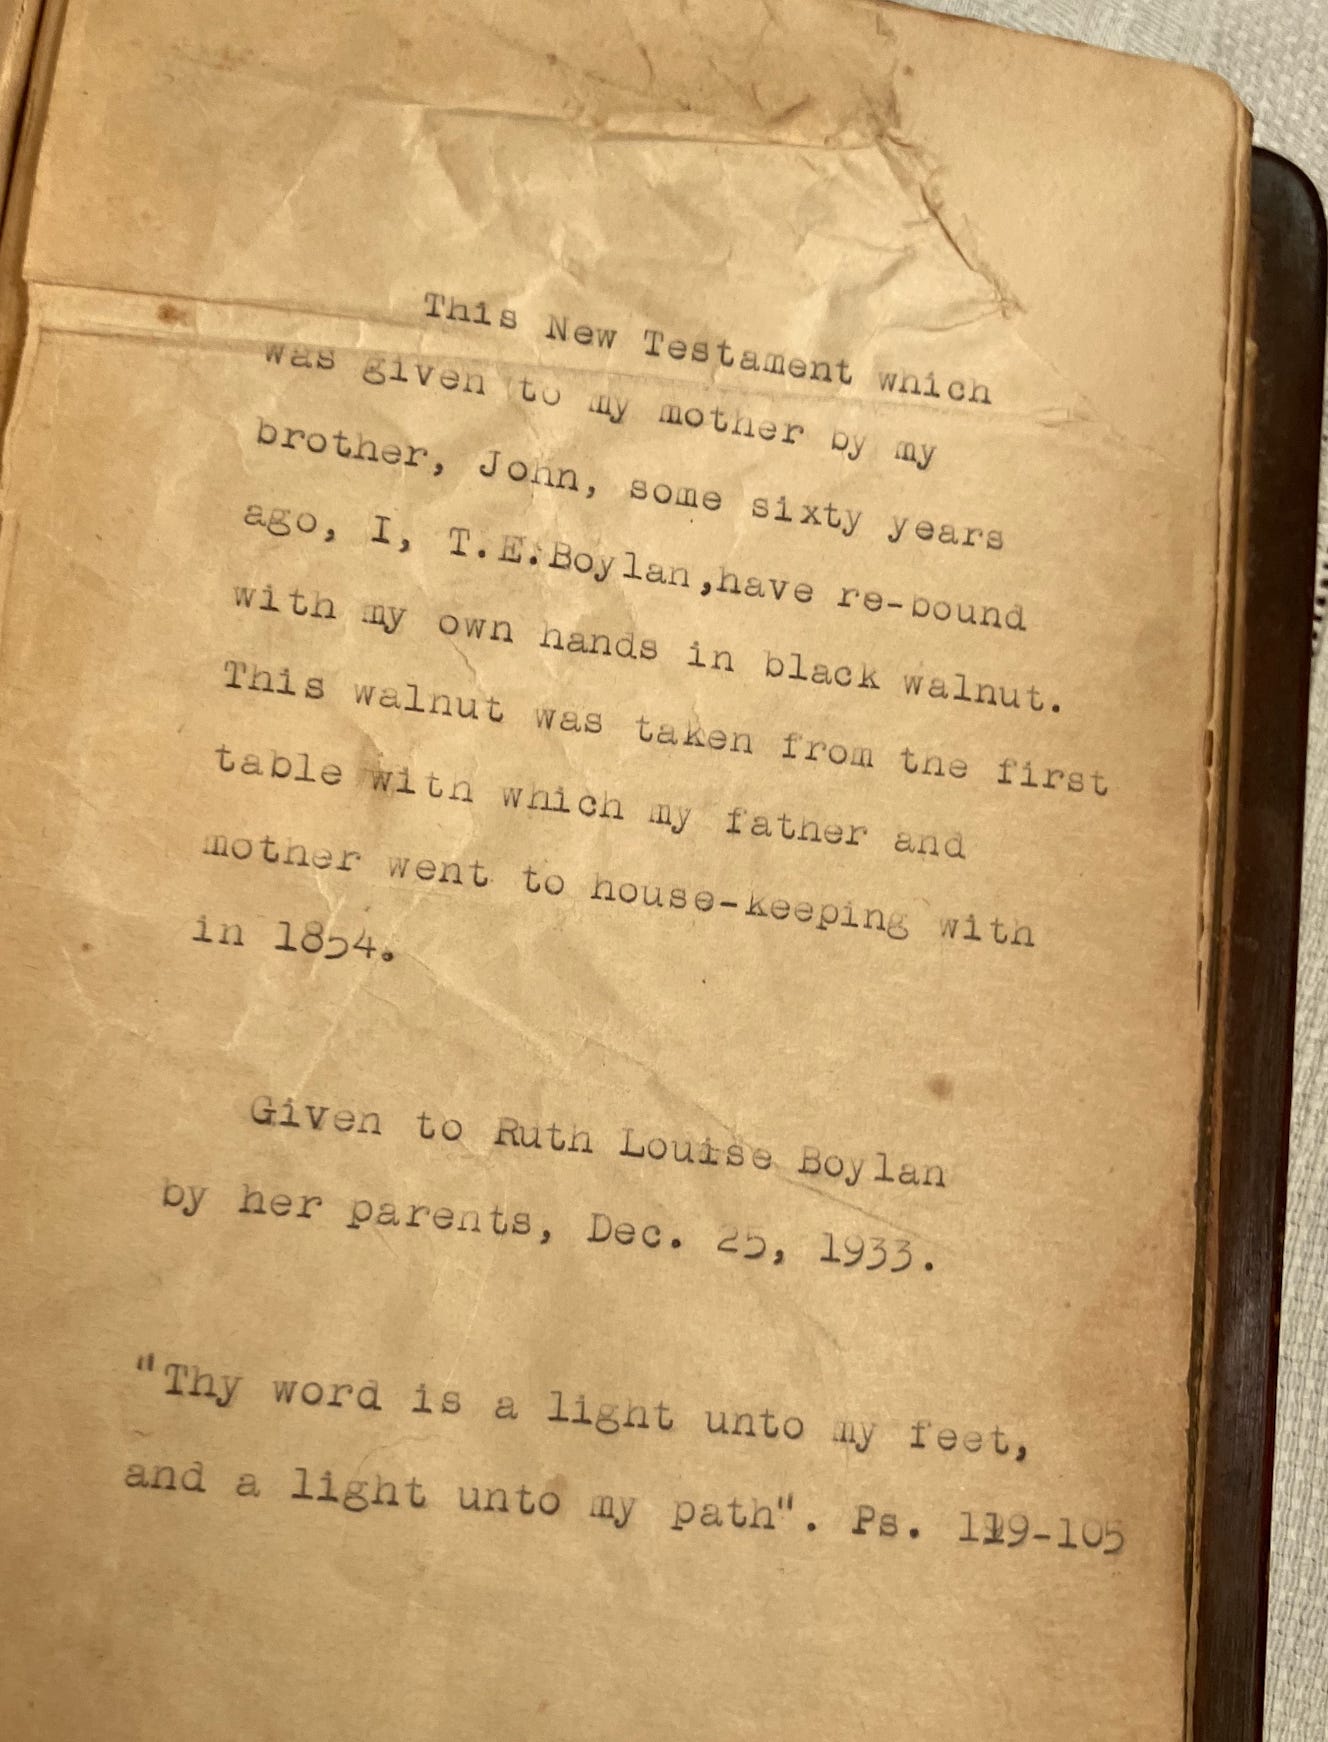 This New Testament which
was given to my mother by my
brother, John, some sixty years
ago, I, T.E.Boylan,have re-bound
with my own hands in black walnut.
This walnut was taken from the first
table with which my father and
mother went to house-keeping with
in 1854.
Given to Ruth Louise Boylan
by her parents, Dec. 25, 1933.
"Thy word is a light unto my feet,
and a light unto my path". Ps. 119-105